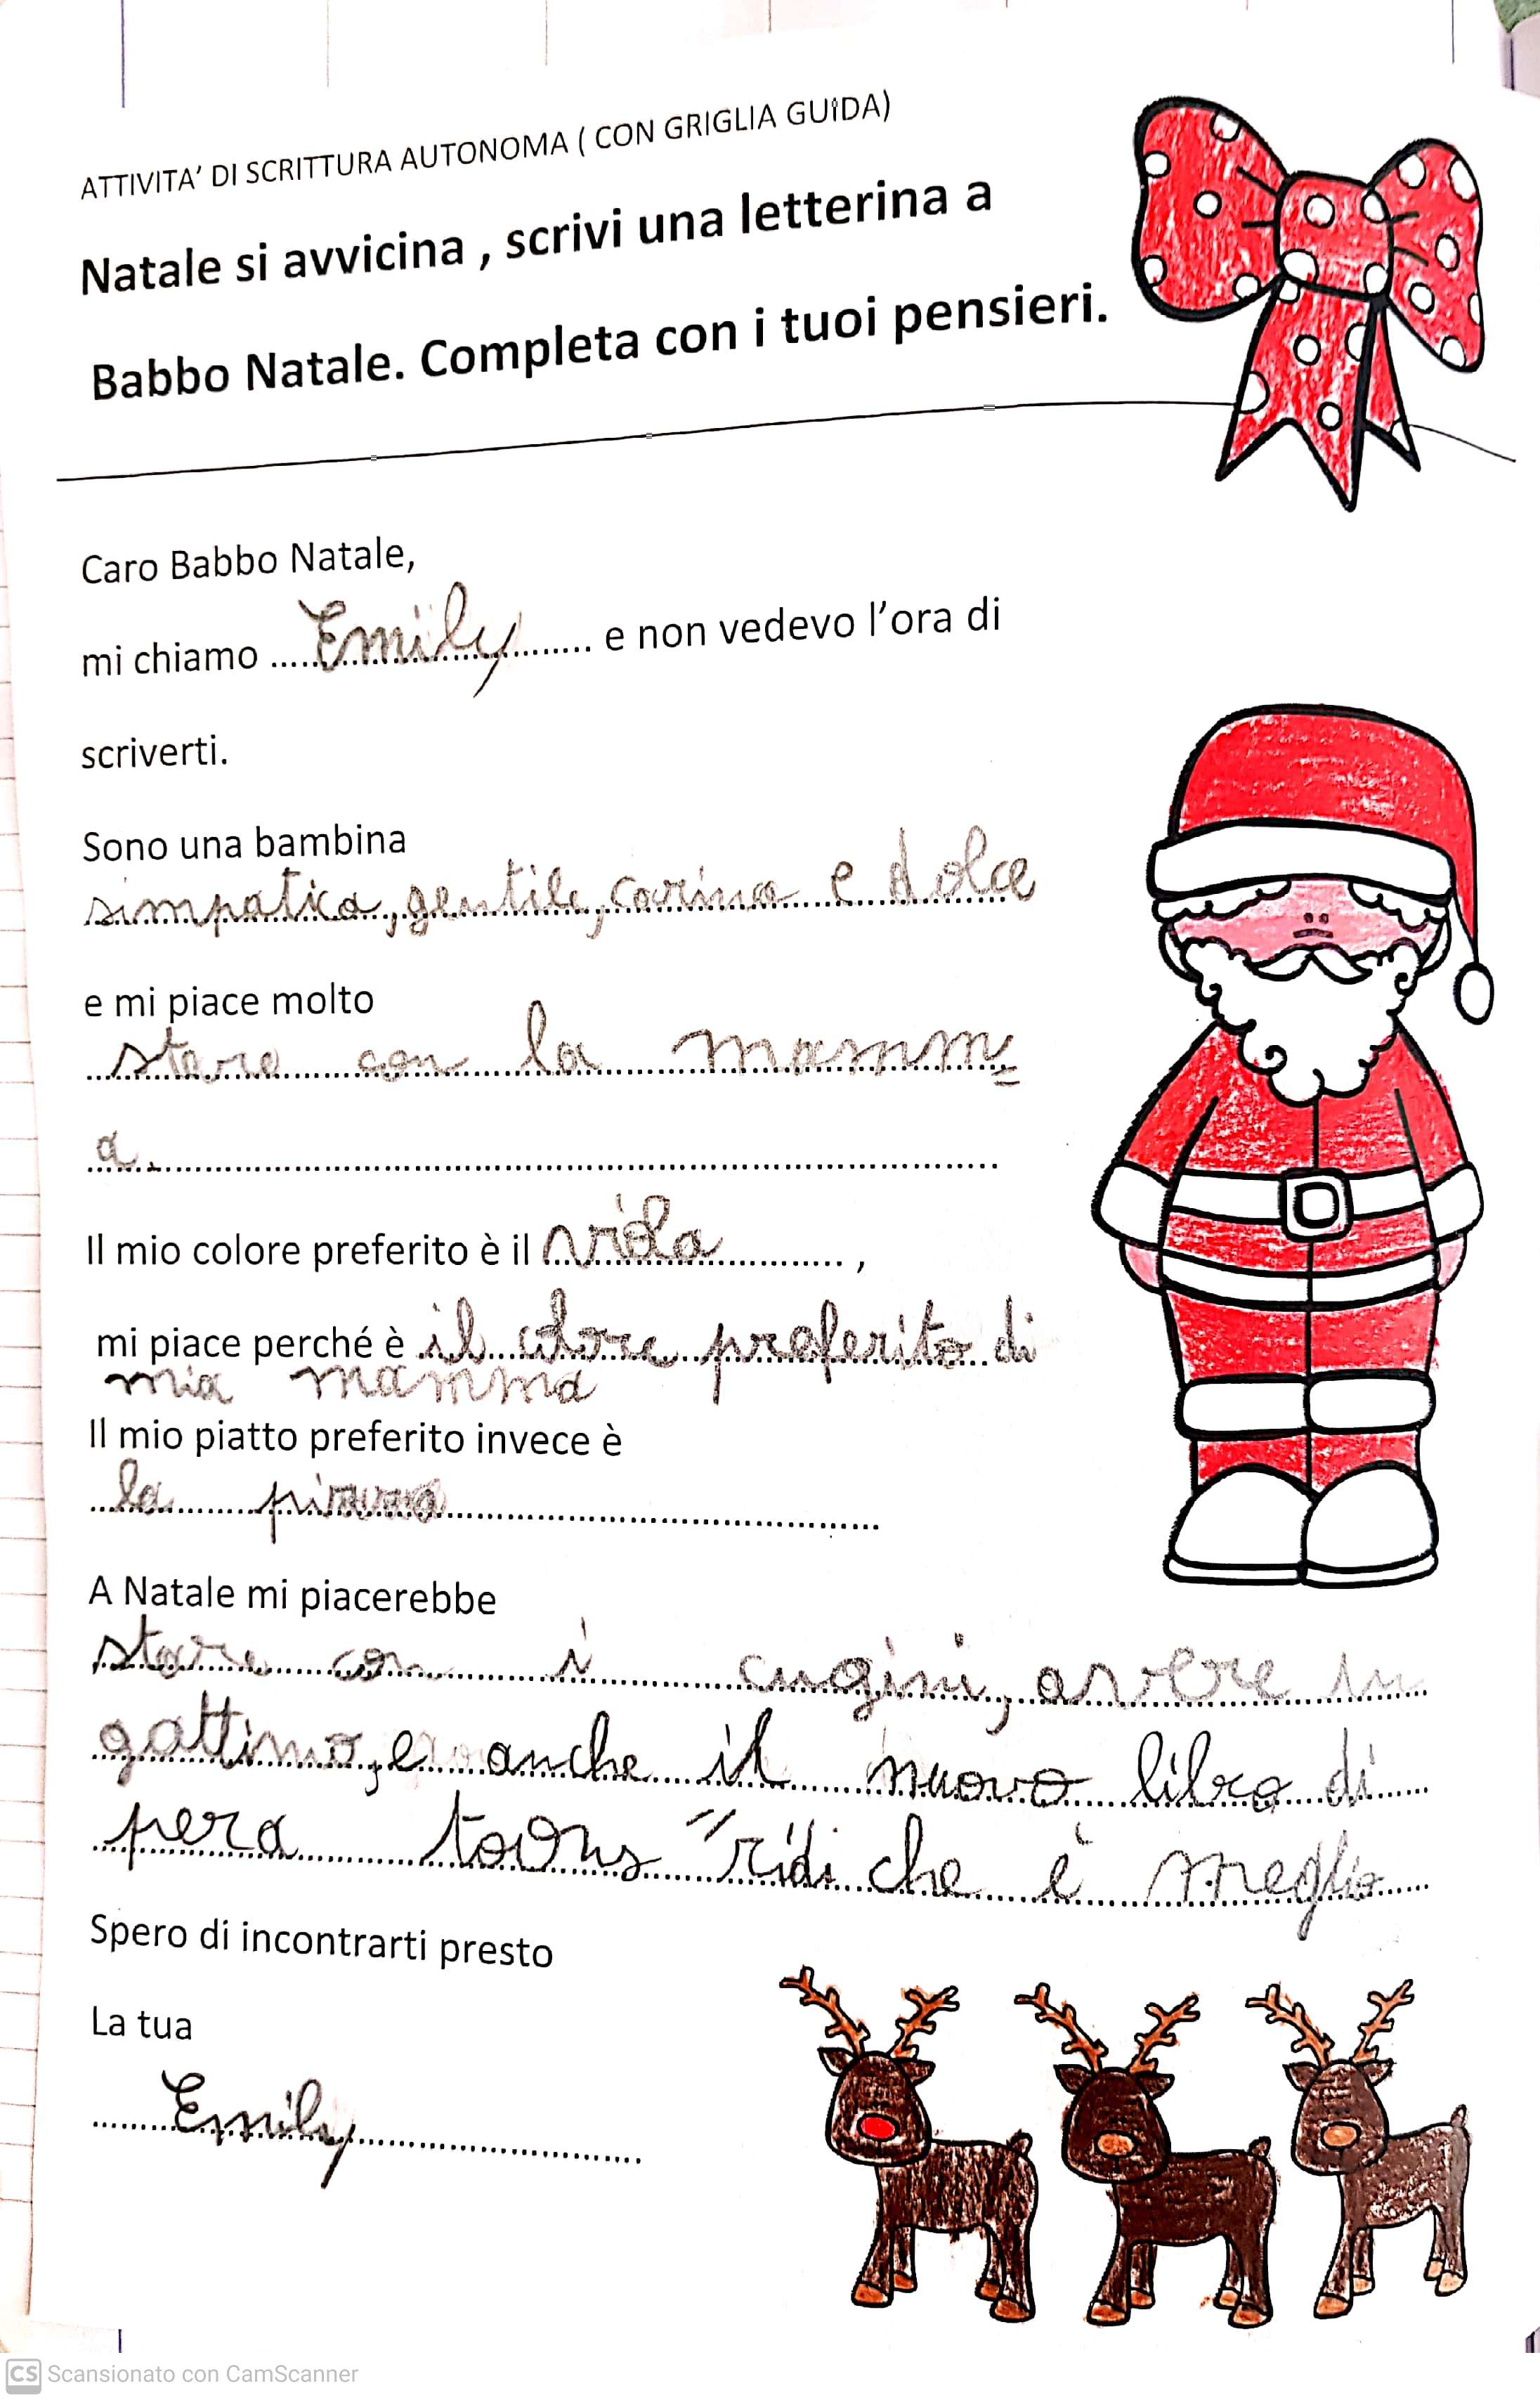 ATTIVITA' DI SCRITTURA AUTONOMA ( CON GRIGLIA GUIDA)
Natale si avvicina , scrivi una letterina a
Babbo Natale. Completa con i tuoi pensieri.
Caro Babbo Natale,
mi chiamo ..... Emily ..... e non vedevo l'ora di
scriverti.
Sono una bambina
simpatica, gentile, carina e dolce
e mi piace molto
stare con la mamm=
a.
Il mio colore preferito è il viola ,
mi piace perché è il colore preferito di
mia mamma
Il mio piatto preferito invece è
la
A Natale mi piacerebbe
stare con i cugini, avere un
gattino, e anche il nuovo libro di
pera toons "ridi che è meglio
Spero di incontrarti presto
La tua
Emily
CS Scansionato con CamScanner